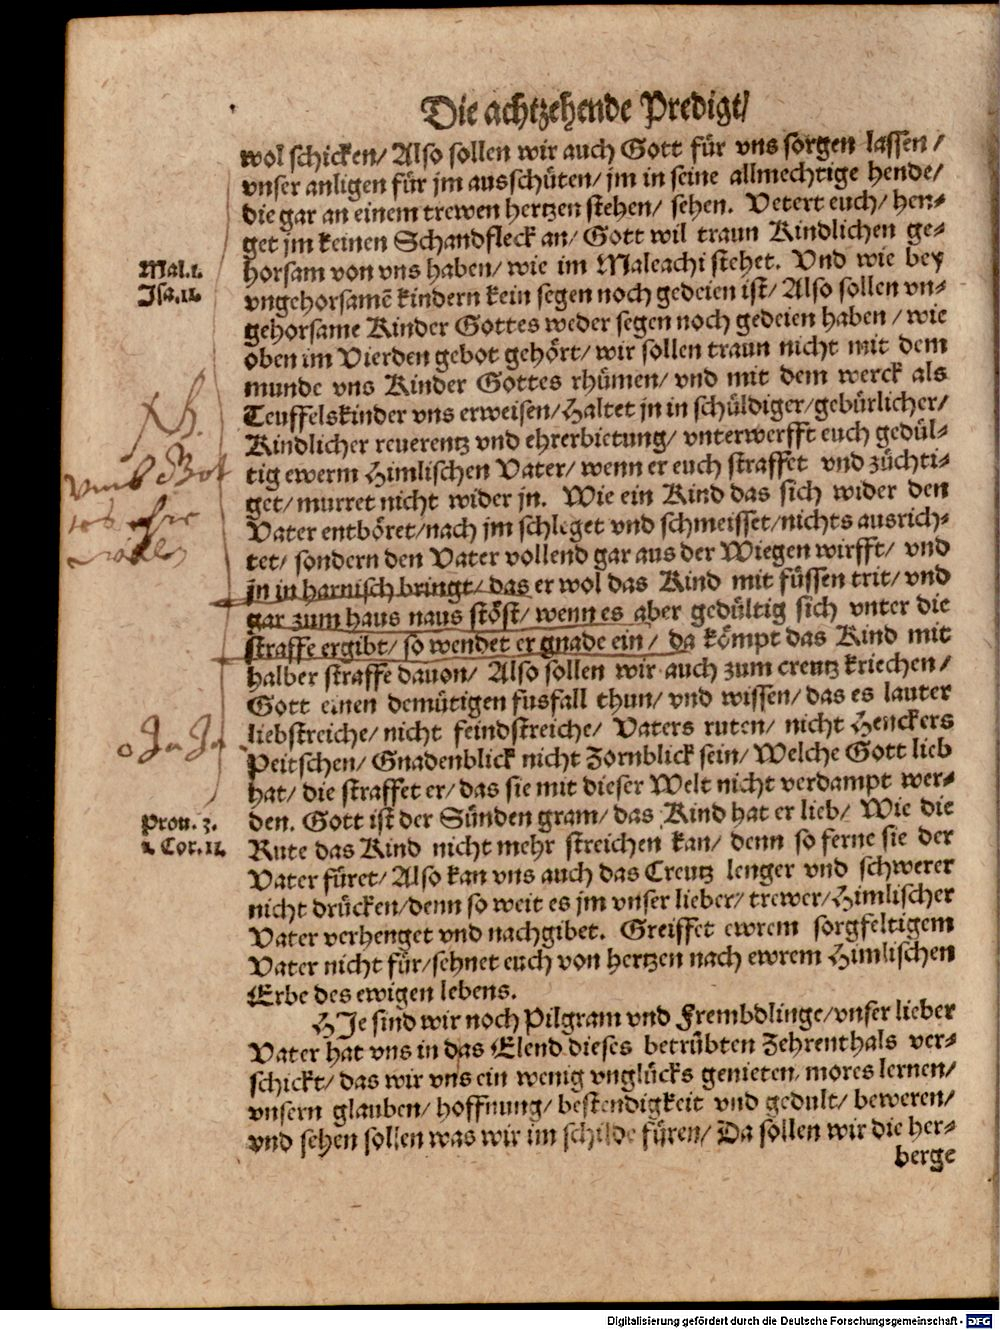 Die achtzehende Predigt/
wol schicken/ Also sollen wir auch Gott für vns sorgen lassen/
vnser anligen für jm ausschüten/ jm in seine allmechtige hende/
die gar an einem trewen hertzen stehen/ sehen. Vetert euch/ hen-
get jm keinen Schandfleck an/ Gott wil traun Kindlichen ge-
horsam von vns haben/ wie im Maleachi stehet. Vnd wie bey
Mal.1.
Isa.11.
vngehorsamē kindern kein segen noch gedeien ist/ Also sollen vn-
gehorsame Kinder Gottes weder segen noch gedeien haben/ wie
oben im Vierden gebot gehört/ wir sollen traun nicht mit dem
munde vns Kinder Gottes rhümen/ vnd mit dem werck als
Teuffelskinder vns erweisen/ Haltet jn in schüldiger/ gebürlicher/
NB.
Kindlicher reuerentz vnd ehrerbietung/ vnterwerfft euch gedül-
tig ewerm Himlischen Vater/ wenn er euch straffet vnd züchti-
get/ murret nicht wider jn. Wie ein Kind das sich wider den
Vater entböret/ nach jm schleget vnd schmeisset/ nichts ausrich-
tet/ sondern den Vater vollend gar aus der Wiegen wirfft/ vnd
jn in harnisch bringt/ das er wol das Kind mit füssen trit/ vnd
gar zum haus naus stöst/ wenn es aber gedültig sich vnter die
straffe ergibt/ so wendet er gnade ein/ da kömpt das Kind mit
halber straffe dauon/ Also sollen wir auch zum creutz kriechen/
Gott einen demütigen fusfall thun/ vnd wissen/ das es lauter
liebstreiche/ nicht feindstreiche/ Vaters ruten/ nicht Henckers
o Ja Ja
Peitschen/ Gnadenblick nicht Zornblick sein/ Welche Gott lieb
hat/ die straffet er/ das sie mit dieser Welt nicht verdampt wer-
den. Gott ist der Sünden gram/ das Kind hat er lieb/ Wie die
Prou. 3.
1. Cor. 11.
Rute das Kind nicht mehr streichen kan/ denn so ferne sie der
Vater füret/ Also kan vns auch das Creutz lenger vnd schwerer
nicht drücken/ denn so weit es jm vnser lieber/ trewer/ Himlischer
Vater verhenget vnd nachgibet. Greiffet ewrem sorgfeltigem
Vater nicht für/ sehnet euch von hertzen nach ewrem Himlischen
Erbe des ewigen lebens.
HJe sind wir noch Pilgram vnd Frembdlinge/ vnser lieber
Vater hat vns in das Elend dieses betrübten Zehrenthals ver-
schickt/ das wir vns ein wenig vnglücks genieten/ mores lernen/
vnsern glauben/ hoffnung/ bestendigkeit vnd gedult/ beweren/
vnd sehen sollen was wir im schilde füren/ Da sollen wir die her-
berge
Digitalisierung gefördert durch die Deutsche Forschungsgemeinschaft - DFG